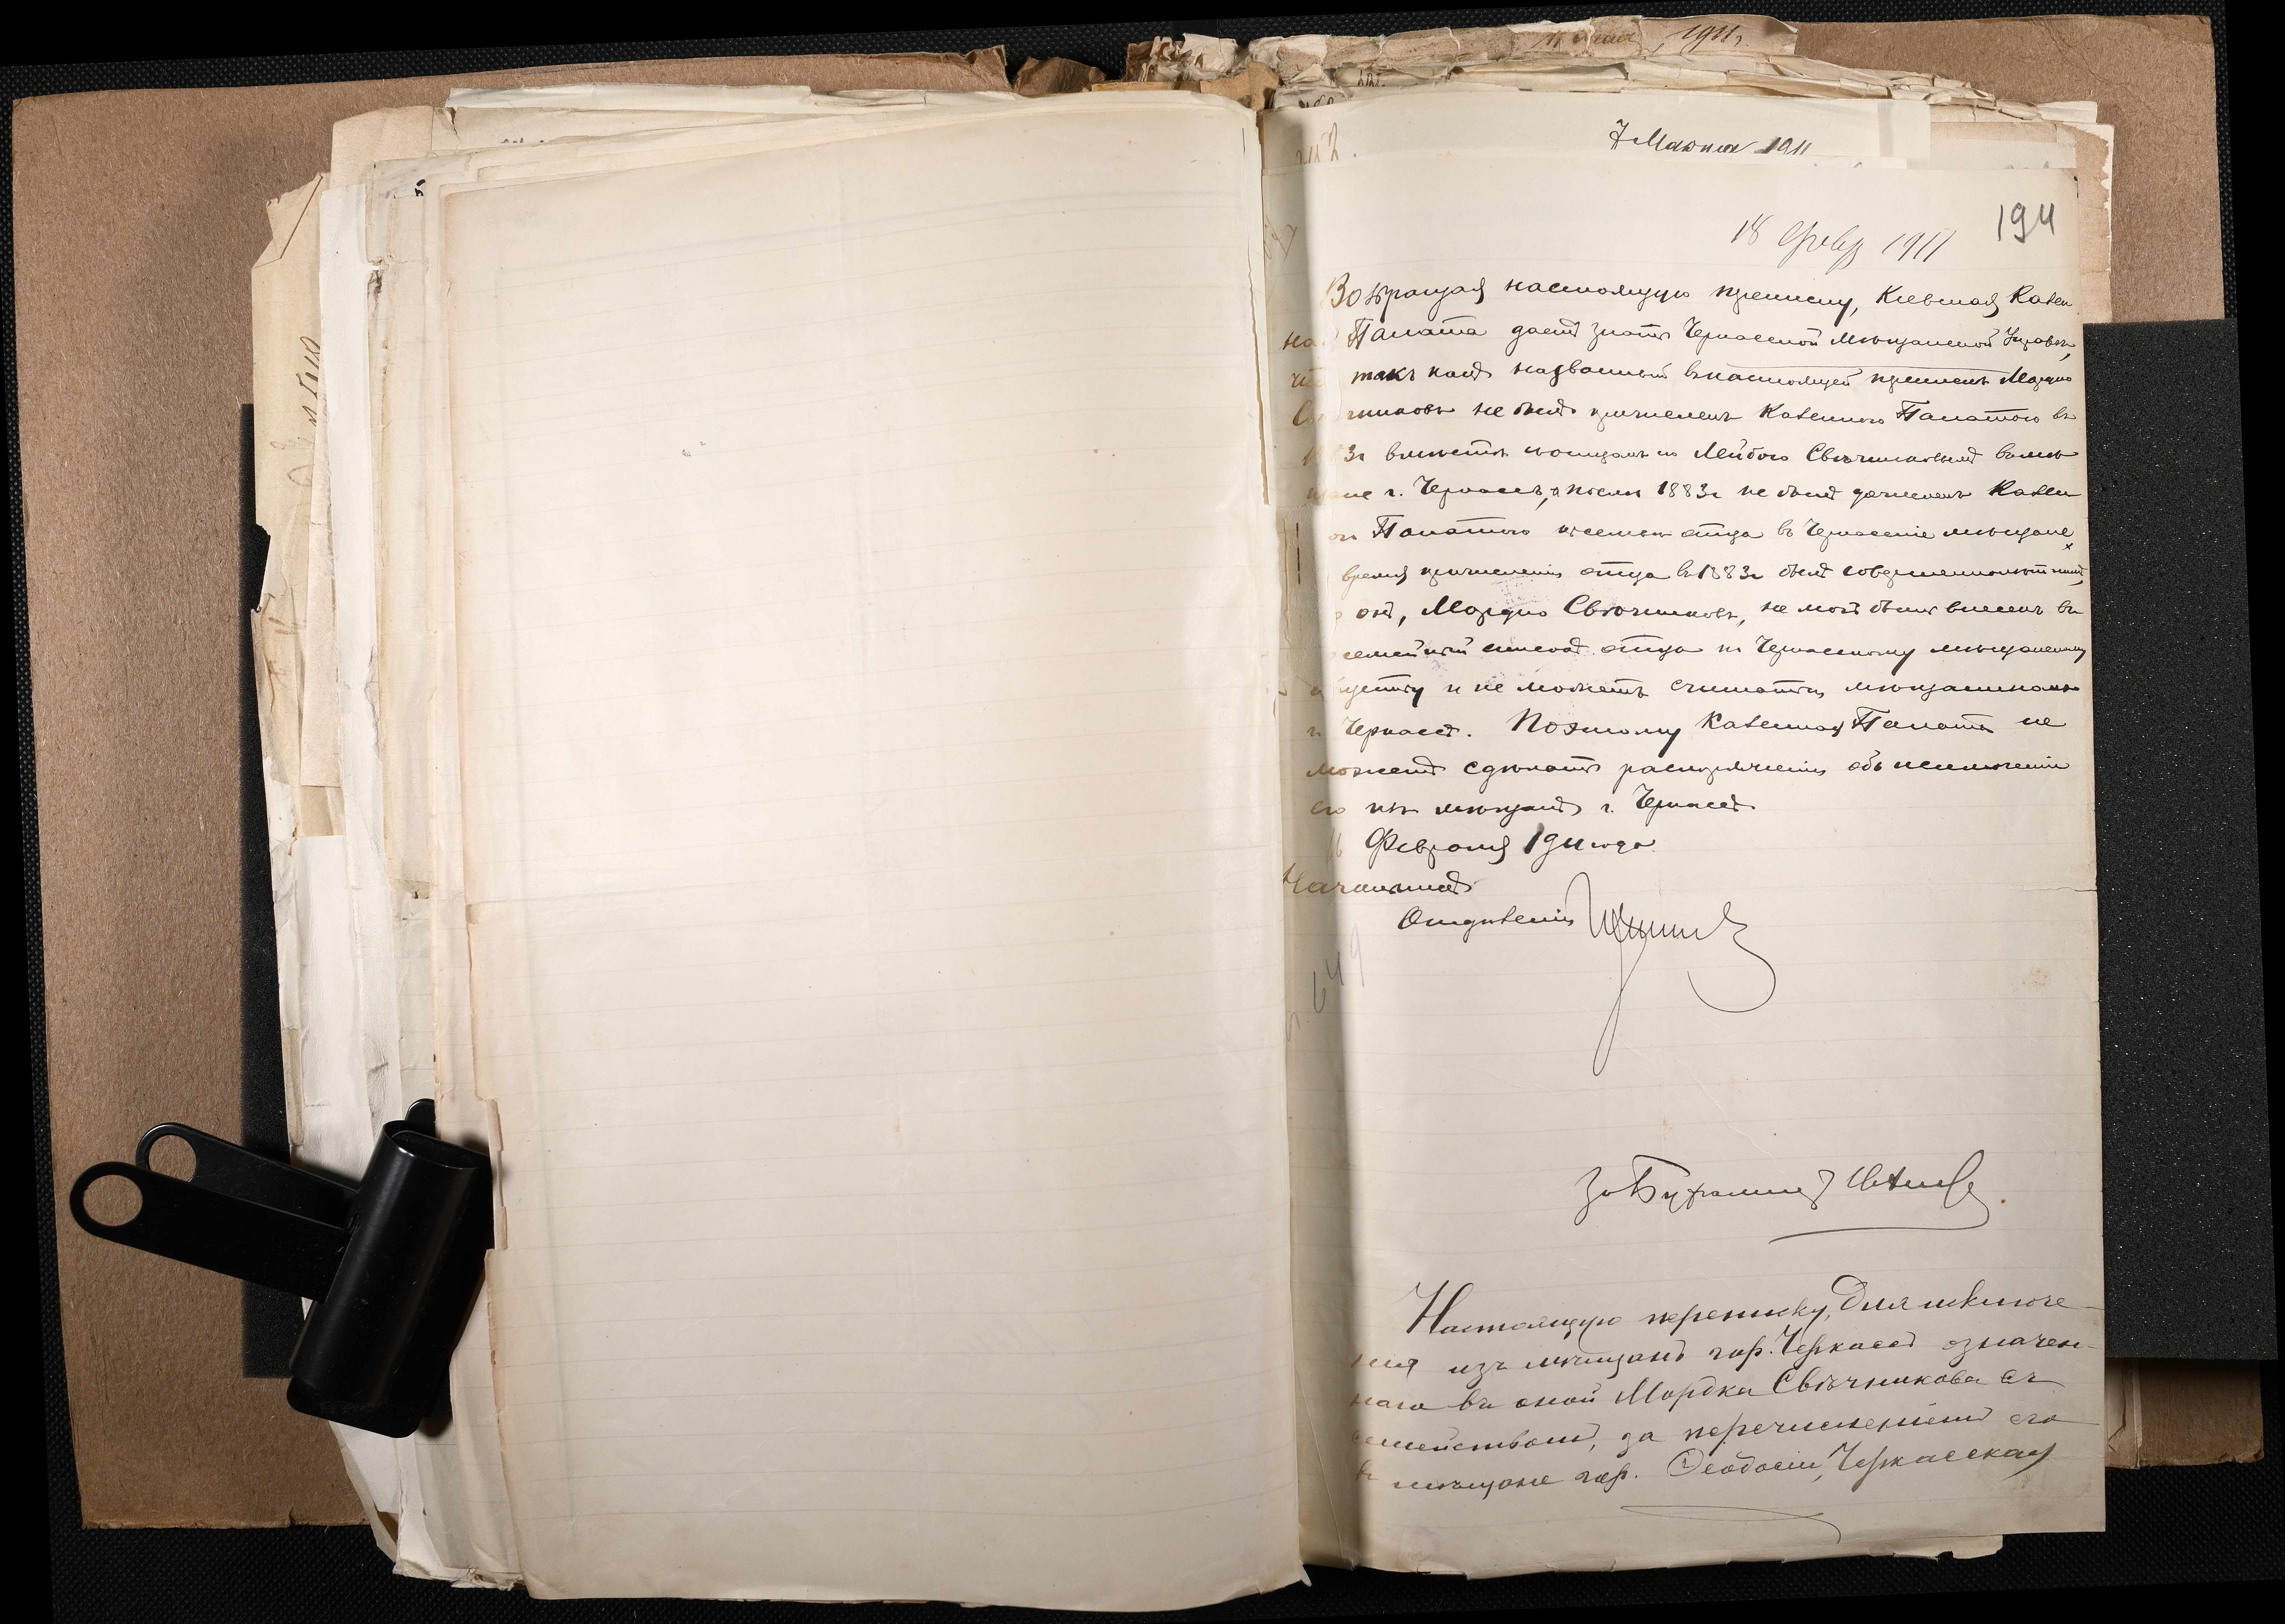 1911 г.
7 Марта 1911
194
18 Февр 1911
Возвращая настоящую переписку, Кіевская Казен
на Палата даетъ знать Черкасской Мѣщанской Управѣ,
что такъ какъ названный въ настоящей перепискѣ Мордко
Свѣчниковъ не былъ причисленъ Казенною Палатою въ
1883г вмѣстѣ съ отцомъ Лейбою Свѣчниковымъ въ мѣ
щане г. Черкассъ, а послѣ 1883г не былъ дочисленъ Казен
ою Палатою къ семьѣ отца въ Черкасскіе мѣщане,
время причисленія отца въ 1883г былъ совершеннолѣтній,
онъ, Мордко Свѣчниковъ, не могъ быть внесенъ въ
семейный списокъ отца по Черкасскому мѣщанскому
обществу и не можетъ считаться мѣщаниномъ
г. Черкассъ. Поэтому Казенная Палата не
можетъ сдѣлать распоряженія объ исключеніи
его изъ мѣщанъ г. Черкассъ
16 Февраля 1911 года.
Начальникъ
Отдѣленія
649
За Бухгалтера
Настоящую переписку, для исключе-
нія изъ мѣщанъ гор. Черкассъ означен-
наго въ оной Мордка Свѣчникова съ
семействомъ, за перечисленіемъ его
въ мѣщане гор. Ѳеодосіи, Черкасская